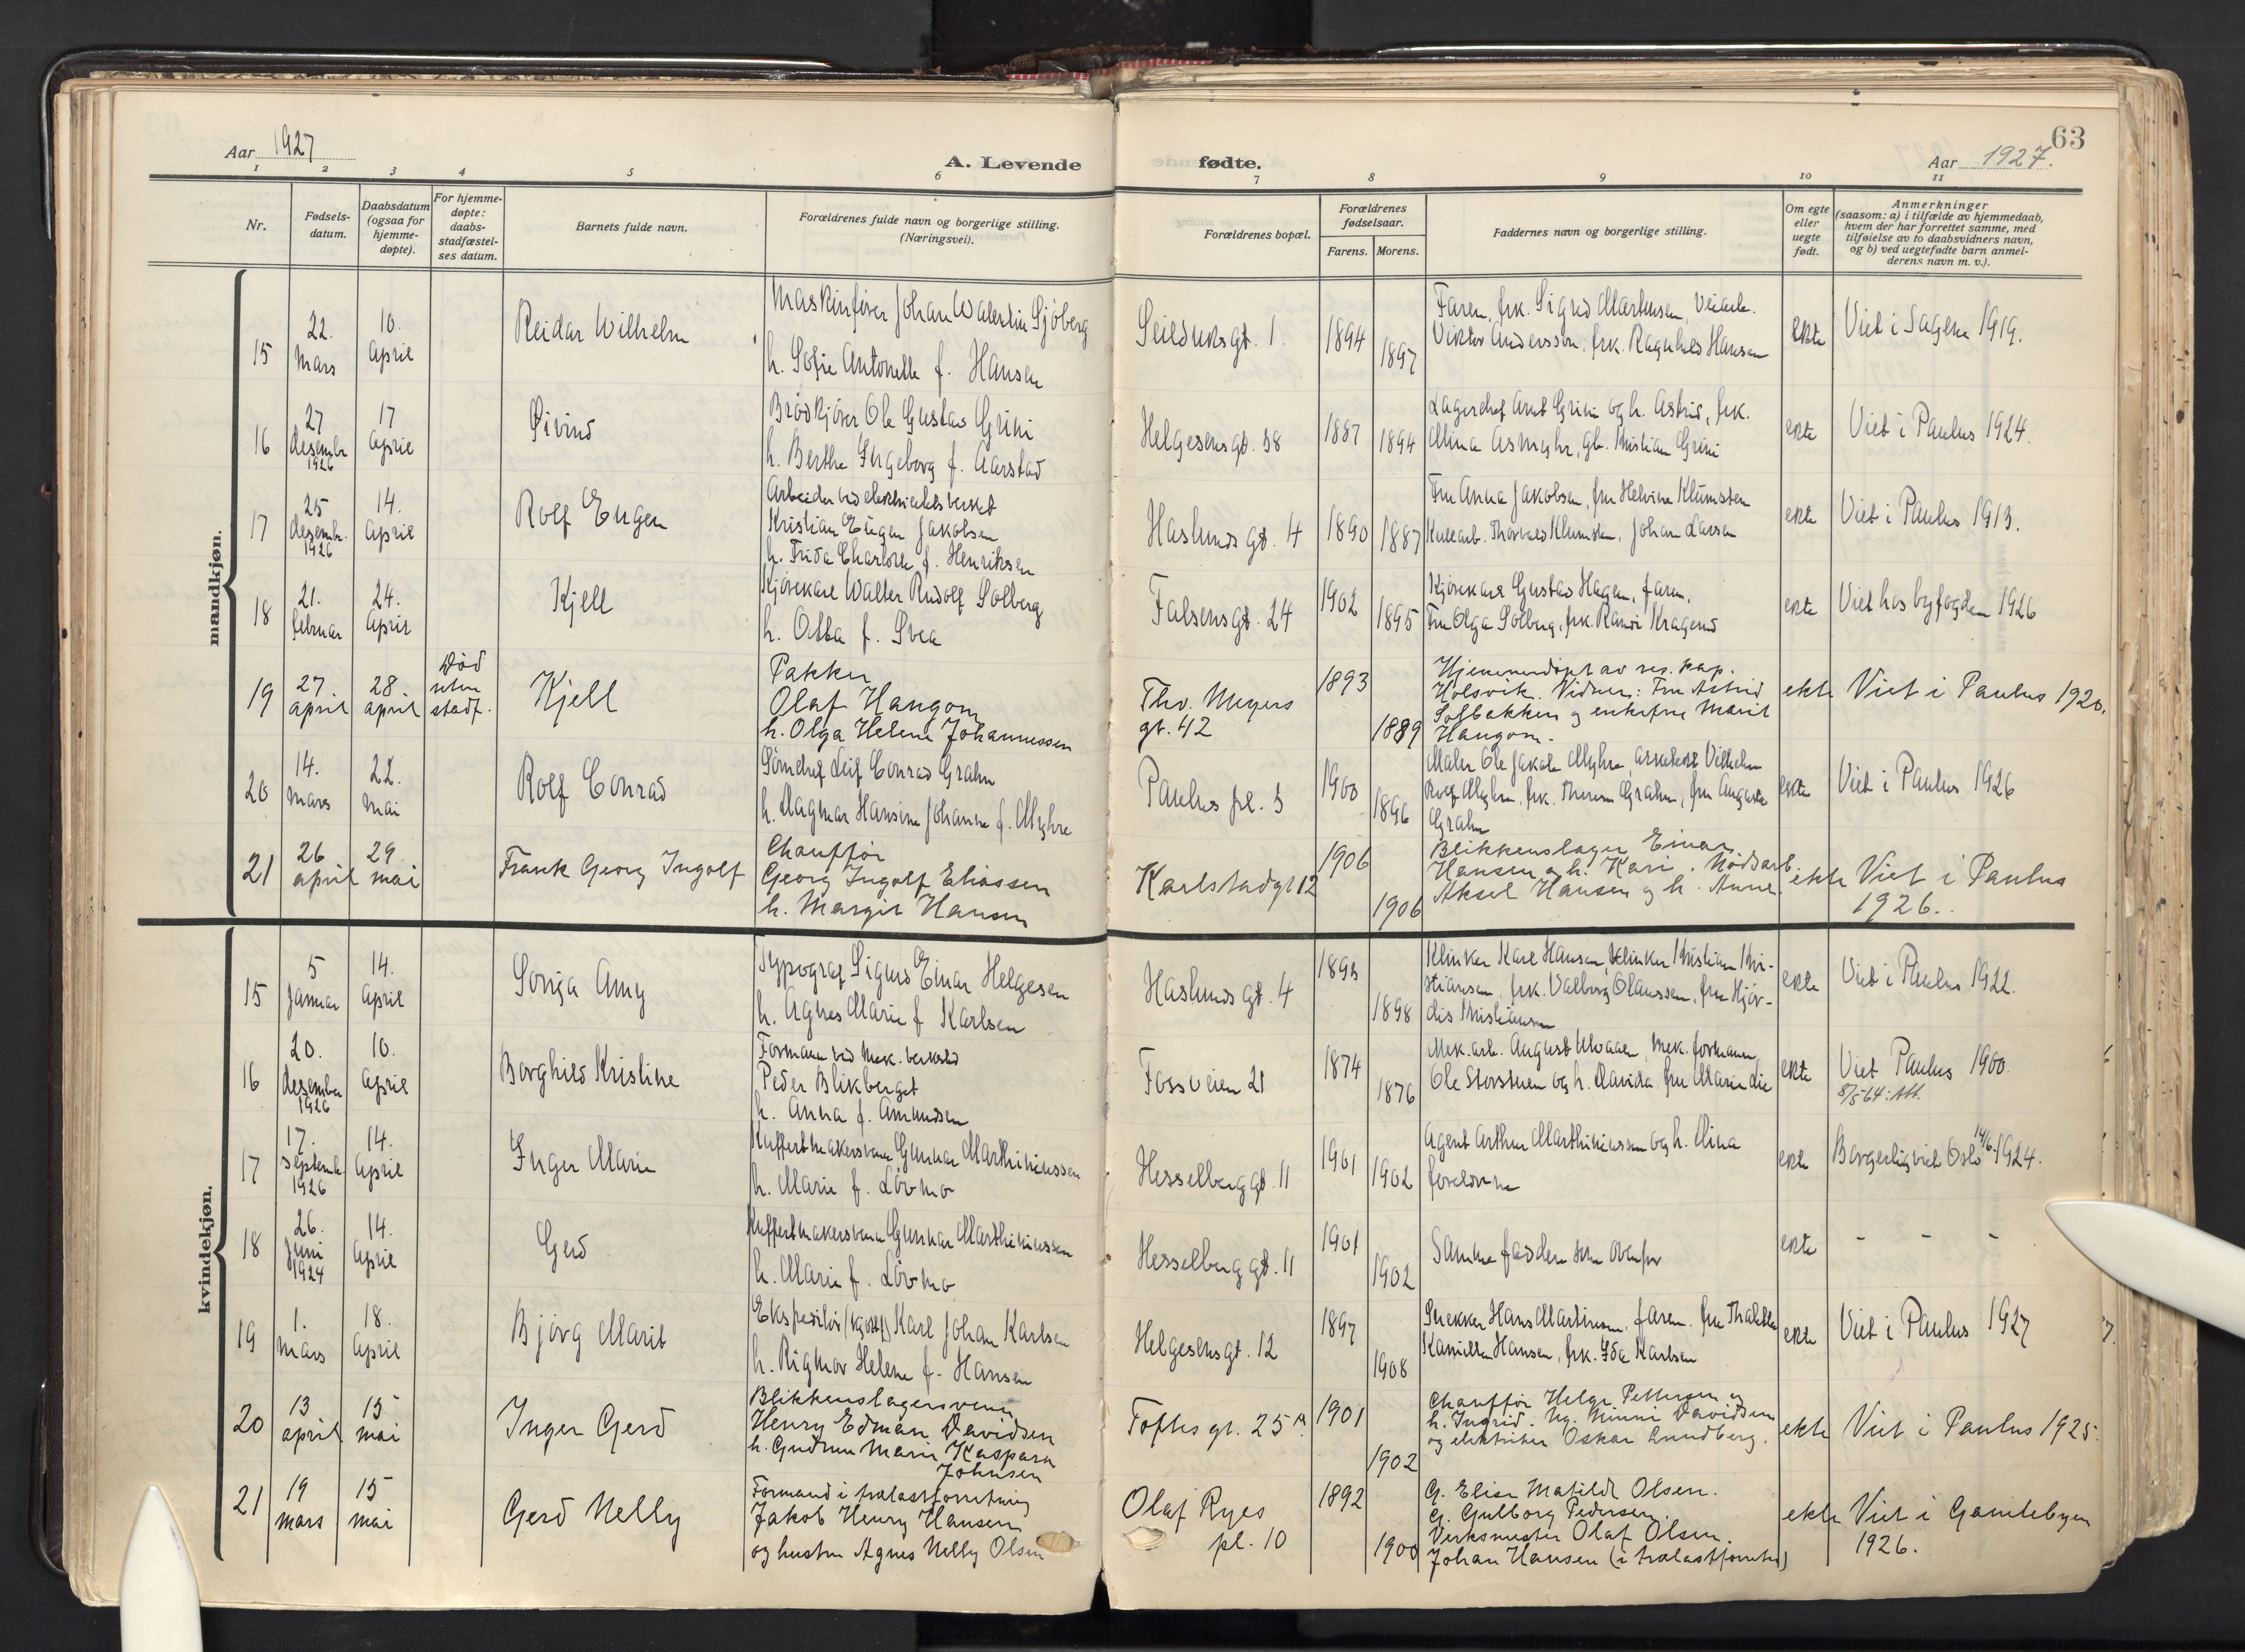 63
Aar 1927
A. Levende
fødte.
Aar 1927.
1 2 3 4 5 6 7 8 9 10 11
Nr.
Fødsels-
datum.
Daabsdatum
(ogsaa for
hjemme-
døpte).
For hjemme-
døpte:
daabs-
stadfæstel-
ses datum.
Barnets fulde navn.
Forældrenes fulde navn og borgerlige stilling.
(Næringsvei).
Forældrenes bopæl.
Forældrenes
fødselsaar.
Farens. Morens.
Faddernes navn og borgerlige stilling.
Om egte
eller
uegte
født.
Anmerkninger
(saasom: a) i tilfælde av hjemmedaab,
hvem der har forrettet samme, med
tilføielse av to daabsvidners navn,
og b) ved uegtefødte barn anmel-
derens navn m. v.).
mandkjøn.
15
22.
Mars
10.
April
Reidar Wilhelm
Maskinfører Johan Walentin Sjöberg
h. Sofie Antonette f. Hansen
Seilduksgt. 1.
1894
1897
Faren, frk. Sigrid Martinsen,
Viktor Andersson, frk. Ragnhild Hansen
ekte
Viet i Sagene 1919.
16
27
desembr
1926
17
April
Øivind
Brødkjører Ole Gustav Grini
h. Berthe Ingeborg f. Aarstad
Helgesensgt. 58
1887
1894
Lagerchef Grini og h. Astrid, frk.
Mina Asmyhr, gb. Kristian Grini
ekte
Viet i Paulus 1924.
17
25
desembr.
1926
14.
April
Rolf Eugen
Arbeider ved elektricitetsverket
Kristian Eugen Jakobsen
h. Frida Charlotte f. Henriksen
Haslunds gt. 4
1890
1887
Fru Anna Jakobsen, fru Helvine Klumsten
Thorvald Klumsten, Johan Larsen
ekte
Viet i Paulus 1913.
18
21.
februar
24.
April
Kjell
Kjørekarl Walter Rudolf Solberg
h. Otta f. Svea
Falsensgt. 24
1902
1895
Kjørekarl Gustav Hagen, faren,
Fru Olga Solberg, frk. Randi Kragerud
ekte
Viet hos byfogden 1926
19
27.
april
28.
april
Død
uten
stadf.
Kjell
Pakker
Olaf Haugom
h. Olga Helene Johannessen
Thv. Meyers
gt. 42
1893
1889
Hjemmedøpt av res. kap.
Holsvik. Vidner: Fru Astrid
Solbakken og enkefru Marit
Haugom.
ekte
Viet i Paulus 1920.
20
14.
Mars
22.
Mai
Rolf Conrad
Leif Conrad Grahn
h. Dagmar Hansine Johanne f. Myhre
Paulus pl. 3
1900
1896
Maler Ole Jakob Myhre, arkitekt Vilhelm
Rolf Myhre, frk. Therese Grahn, fru Augusta
Grahn
ekte
Viet i Paulus 1926
21
26
april
29
mai
Frank Georg Ingolf
Chauffør
Georg Ingolf Eliassen
h. Margit Hansen
Karlstadgt 12
1906
1906
Blikkenslager Einar
Hansen og h. Kari. Nødsarb.
Aksel Hansen og h. Anne.
ekte
Viet i Paulus
1926.
kvindekjøn.
15
5
Januar
14.
April
Sonja Amy
Typograf Sigurd Einar Helgesen
h. Agnes Marie f Karlsen
Haslunds gt. 4
1898
Klinker Karl Hansen, klinker Kristian Kri-
stiansen, frk. Valborg Olaussen, fru Hjør-
dis Kristiansen
ekte
Viet i Paulus 1922.
16
20.
desember
1926
10.
April
Borghild Kristine
Formann ved Mek. verksted
Peder Blikberget
h. Anna f. Amundsen
Fossveien 21
1874
1876
Mek. arb. August Ulvaaen, mek. formann
Ole Storstuen og h. Davida, fru Marie Lie
ekte
Viet Paulus 1900.
8/5-64: Att.
17
17.
septemb.
1926
14.
April
Inger Marie
Kuffertmakersvenn Gunnar Marthiniussen
h. Marie f. Løvmo
Hesselberggt. 11
1901
1902
Agent Arthur Marthiniussen og h. Mina
foreldrene
ekte
Borgerlig viet Oslo 14/6-1924.
18
26.
Juni
1924
14.
April
Gerd
Kuffertmakersvenn Gunnar Marthiniussen
h. Marie f. Løvmo
Hesselberggt. 11
1901
1902
Samme faddere som ovenfor
ekte
- - -
19
1.
Mars
18.
April
Bjørg Marit
Ekspeditør Karl Johan Karlsen
h. Rigmor Helene f. Hansen
Helgesensgt. 12
1897
1908
Snekker Hans Martinsen, faren, fru Thalette
Kamilla Hansen, frk. Ida Karlsen
ekte
Viet i Paulus 1927
20
13
april
15
mai
Inger Gerd
Blikkenslagersvenn
Henry Edman Davidsen
h. Gudrun Marie Kaspara
Johnsen
Toftes gt. 25
1901
1902
Chauffør Helge Pettersen og
h. Ingrid. Ug. Minni Davidsen
og elektriker Oskar Lundberg.
ekte
Viet i Paulus 1925.
21
19
mars
15
mai
Gerd Nelly
Formand i trælastforretning
Jakob Henry Hansen
og hustru Agnes Nelly Olsen
Olaf Ryes
pl. 10
1892
1900
G. Elise Matilde Olsen.
G. Gulborg Pedersen.
Verksmester Olaf Olsen.
Johan Hansen (i trælastforretn)
ekte
Viet i Gamlebyen
1926.